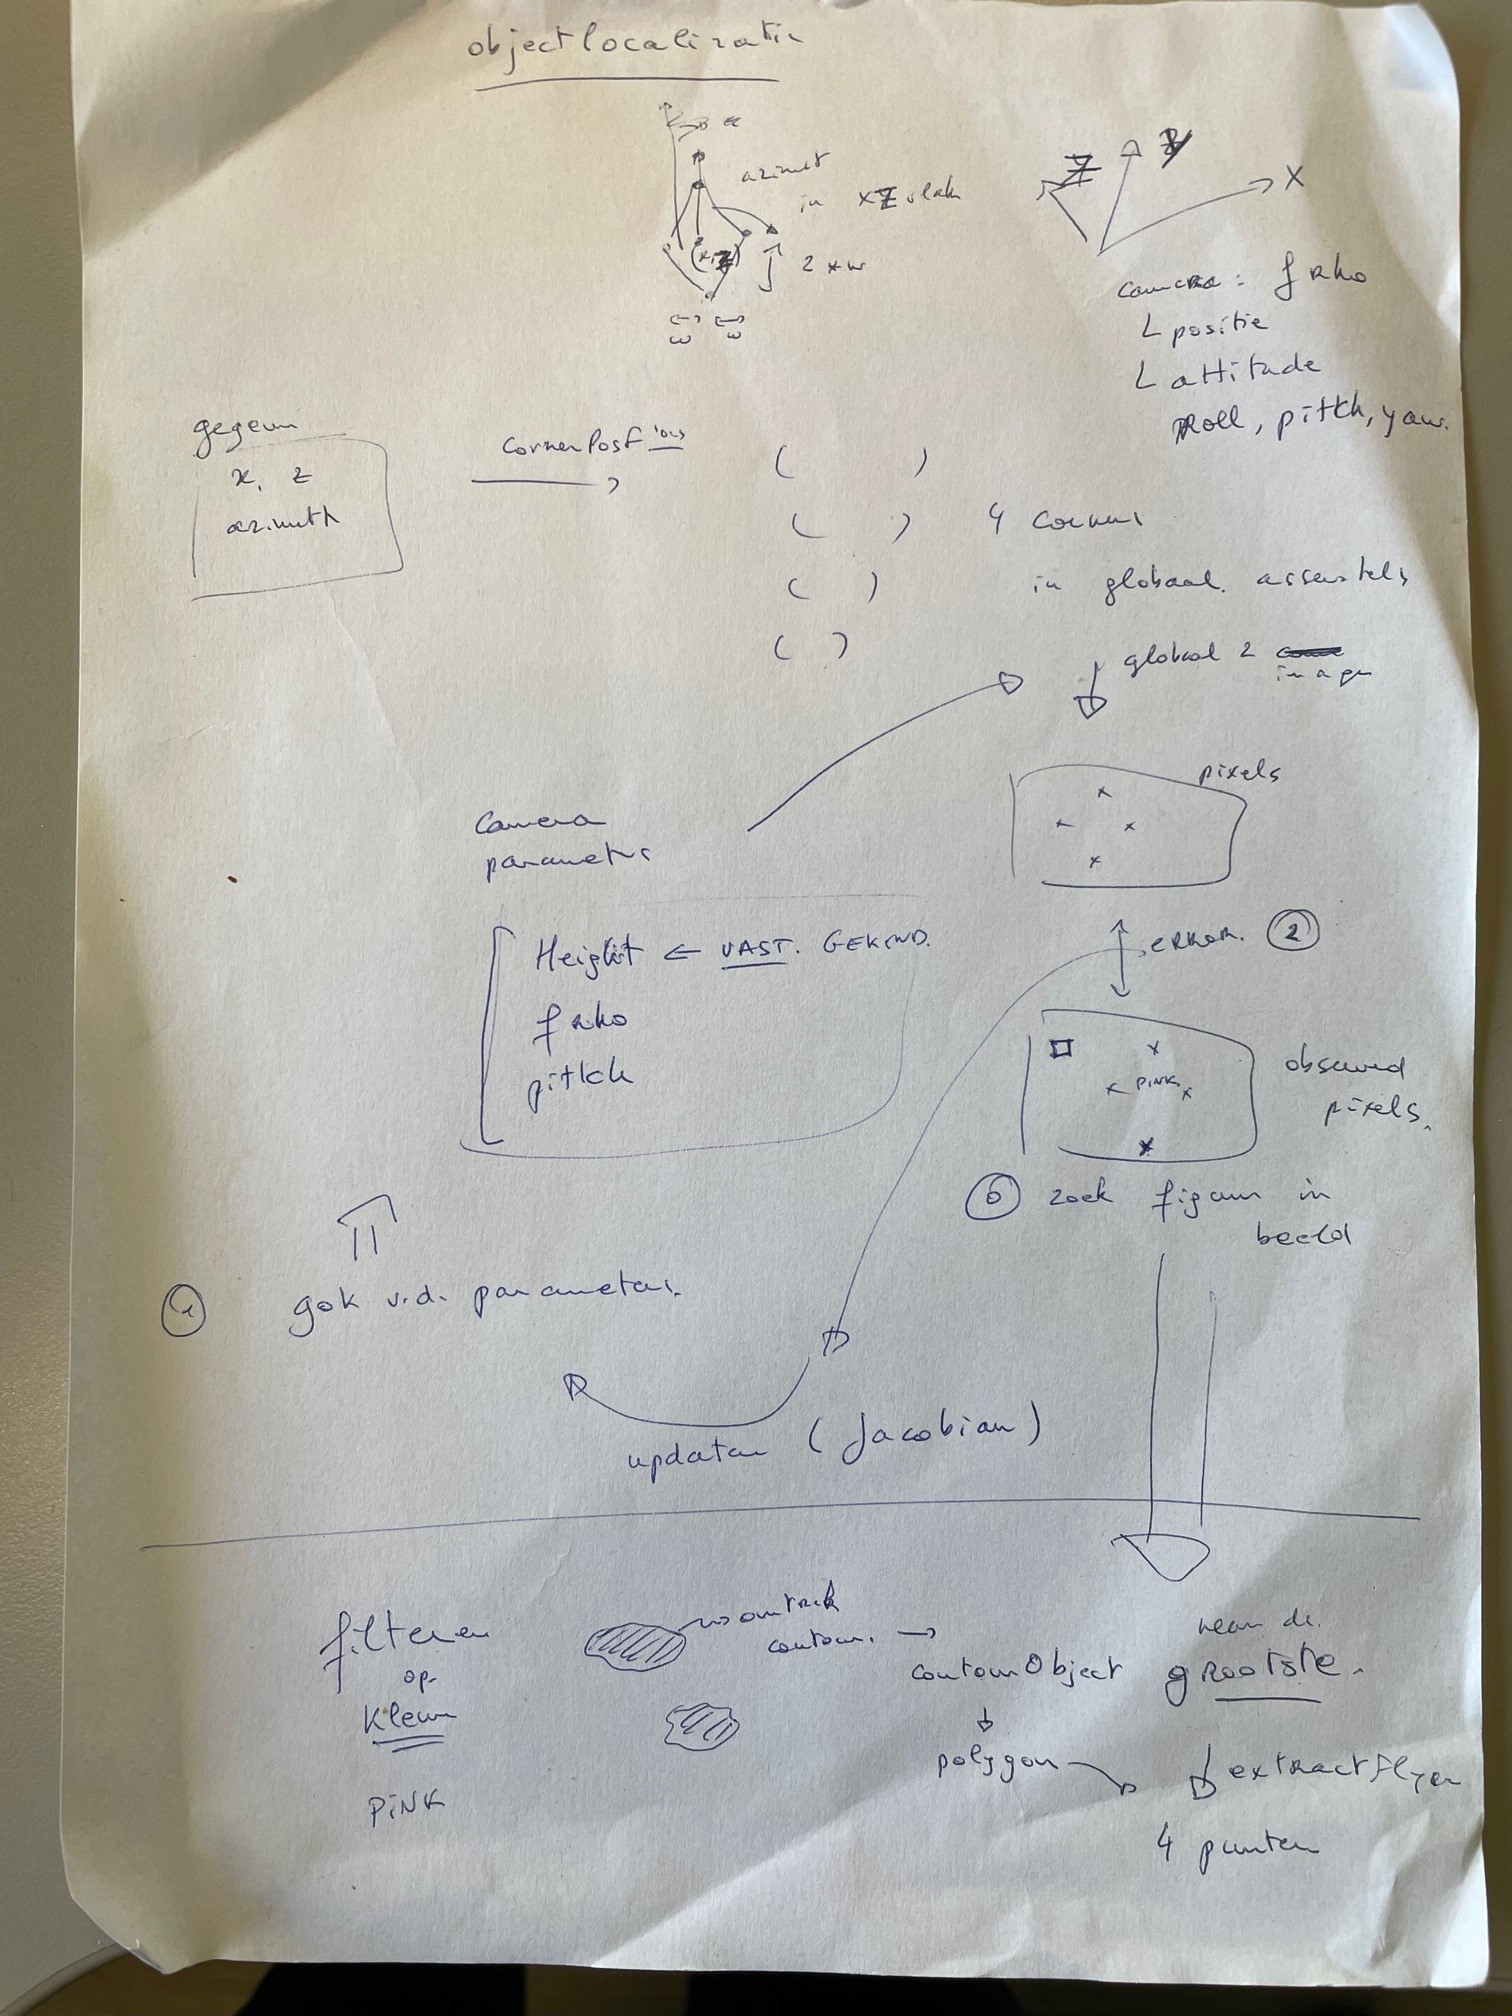 objectlocalizatie
α
azimut
in xZ vlak
(x,Z)
2 x w
ω ω
Z
X
camera: f rho
L positie
L attitude
Roll, pitkh, yaw.
gegeven
x, z
azimuth
cornerPositions
( )
( ) 4 corners
( ) in globaal. assenstels
( )
globaal 2
image
pixels
Camera
parameters
Height ← VAST. GEKEND.
f rho
pitkh
error. 2
PINK
observed
pixels.
0 zoek figuur in
beeld
1 gok v.d. parameters.
updaten (Jacobian)
filteren
op
kleur
PiNK
omtrek
contour. →
contourObject
polygon
neem de.
grootste.
extractFlyer
4 punten